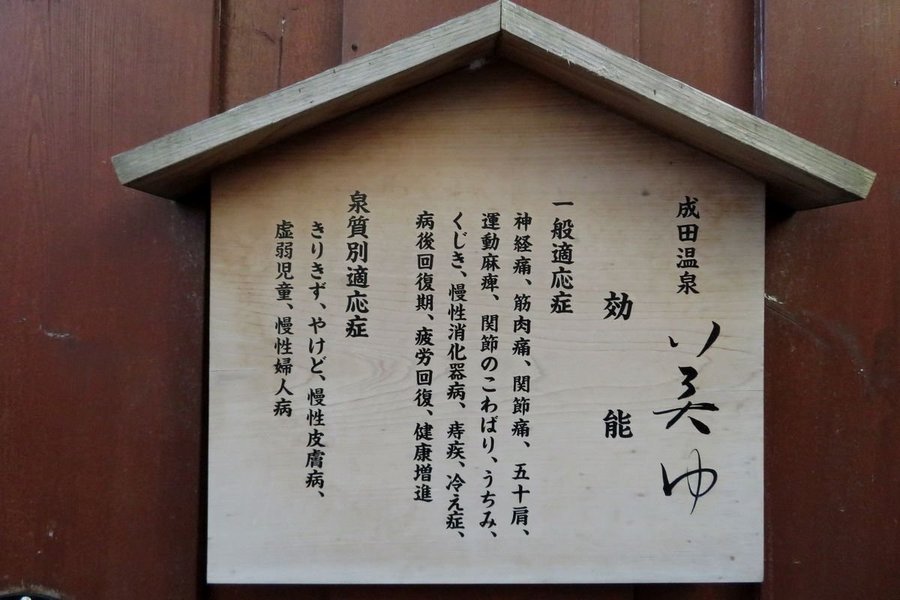 成田温泉
美ゆ
効能
一般適応症
神経痛、筋肉痛、関節痛、五十肩、
運動麻痺、関節のこわばり、うちみ、
くじき、慢性消化器病、痔疾、冷え症、
病後回復期、疲労回復、健康増進
泉質別適応症
きりきず、やけど、慢性皮膚病、
虚弱児童、慢性婦人病